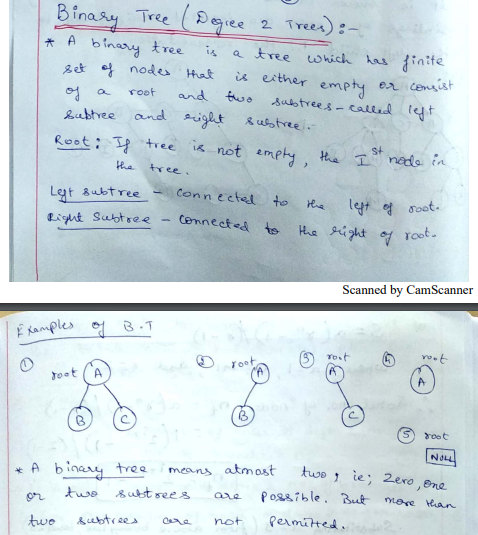 Binary Tree (Degree 2 Trees) :-
* A binary tree is a tree which has finite
set of nodes that is either empty or consist
of a root and two subtrees - called left
subtree and right subtree.
Root: If tree is not empty, the Ist node in
the tree.
Left subtree - connected to the left of root.
Right Subtree - connected to the right of root.
Scanned by CamScanner
Examples of B.T
① root A B C
② root A B
③ root A C
④ root A
⑤ root NULL
* A binary tree means atmost two, ie; zero, one
or two subtrees are possible. But more than
two subtrees are not permitted.